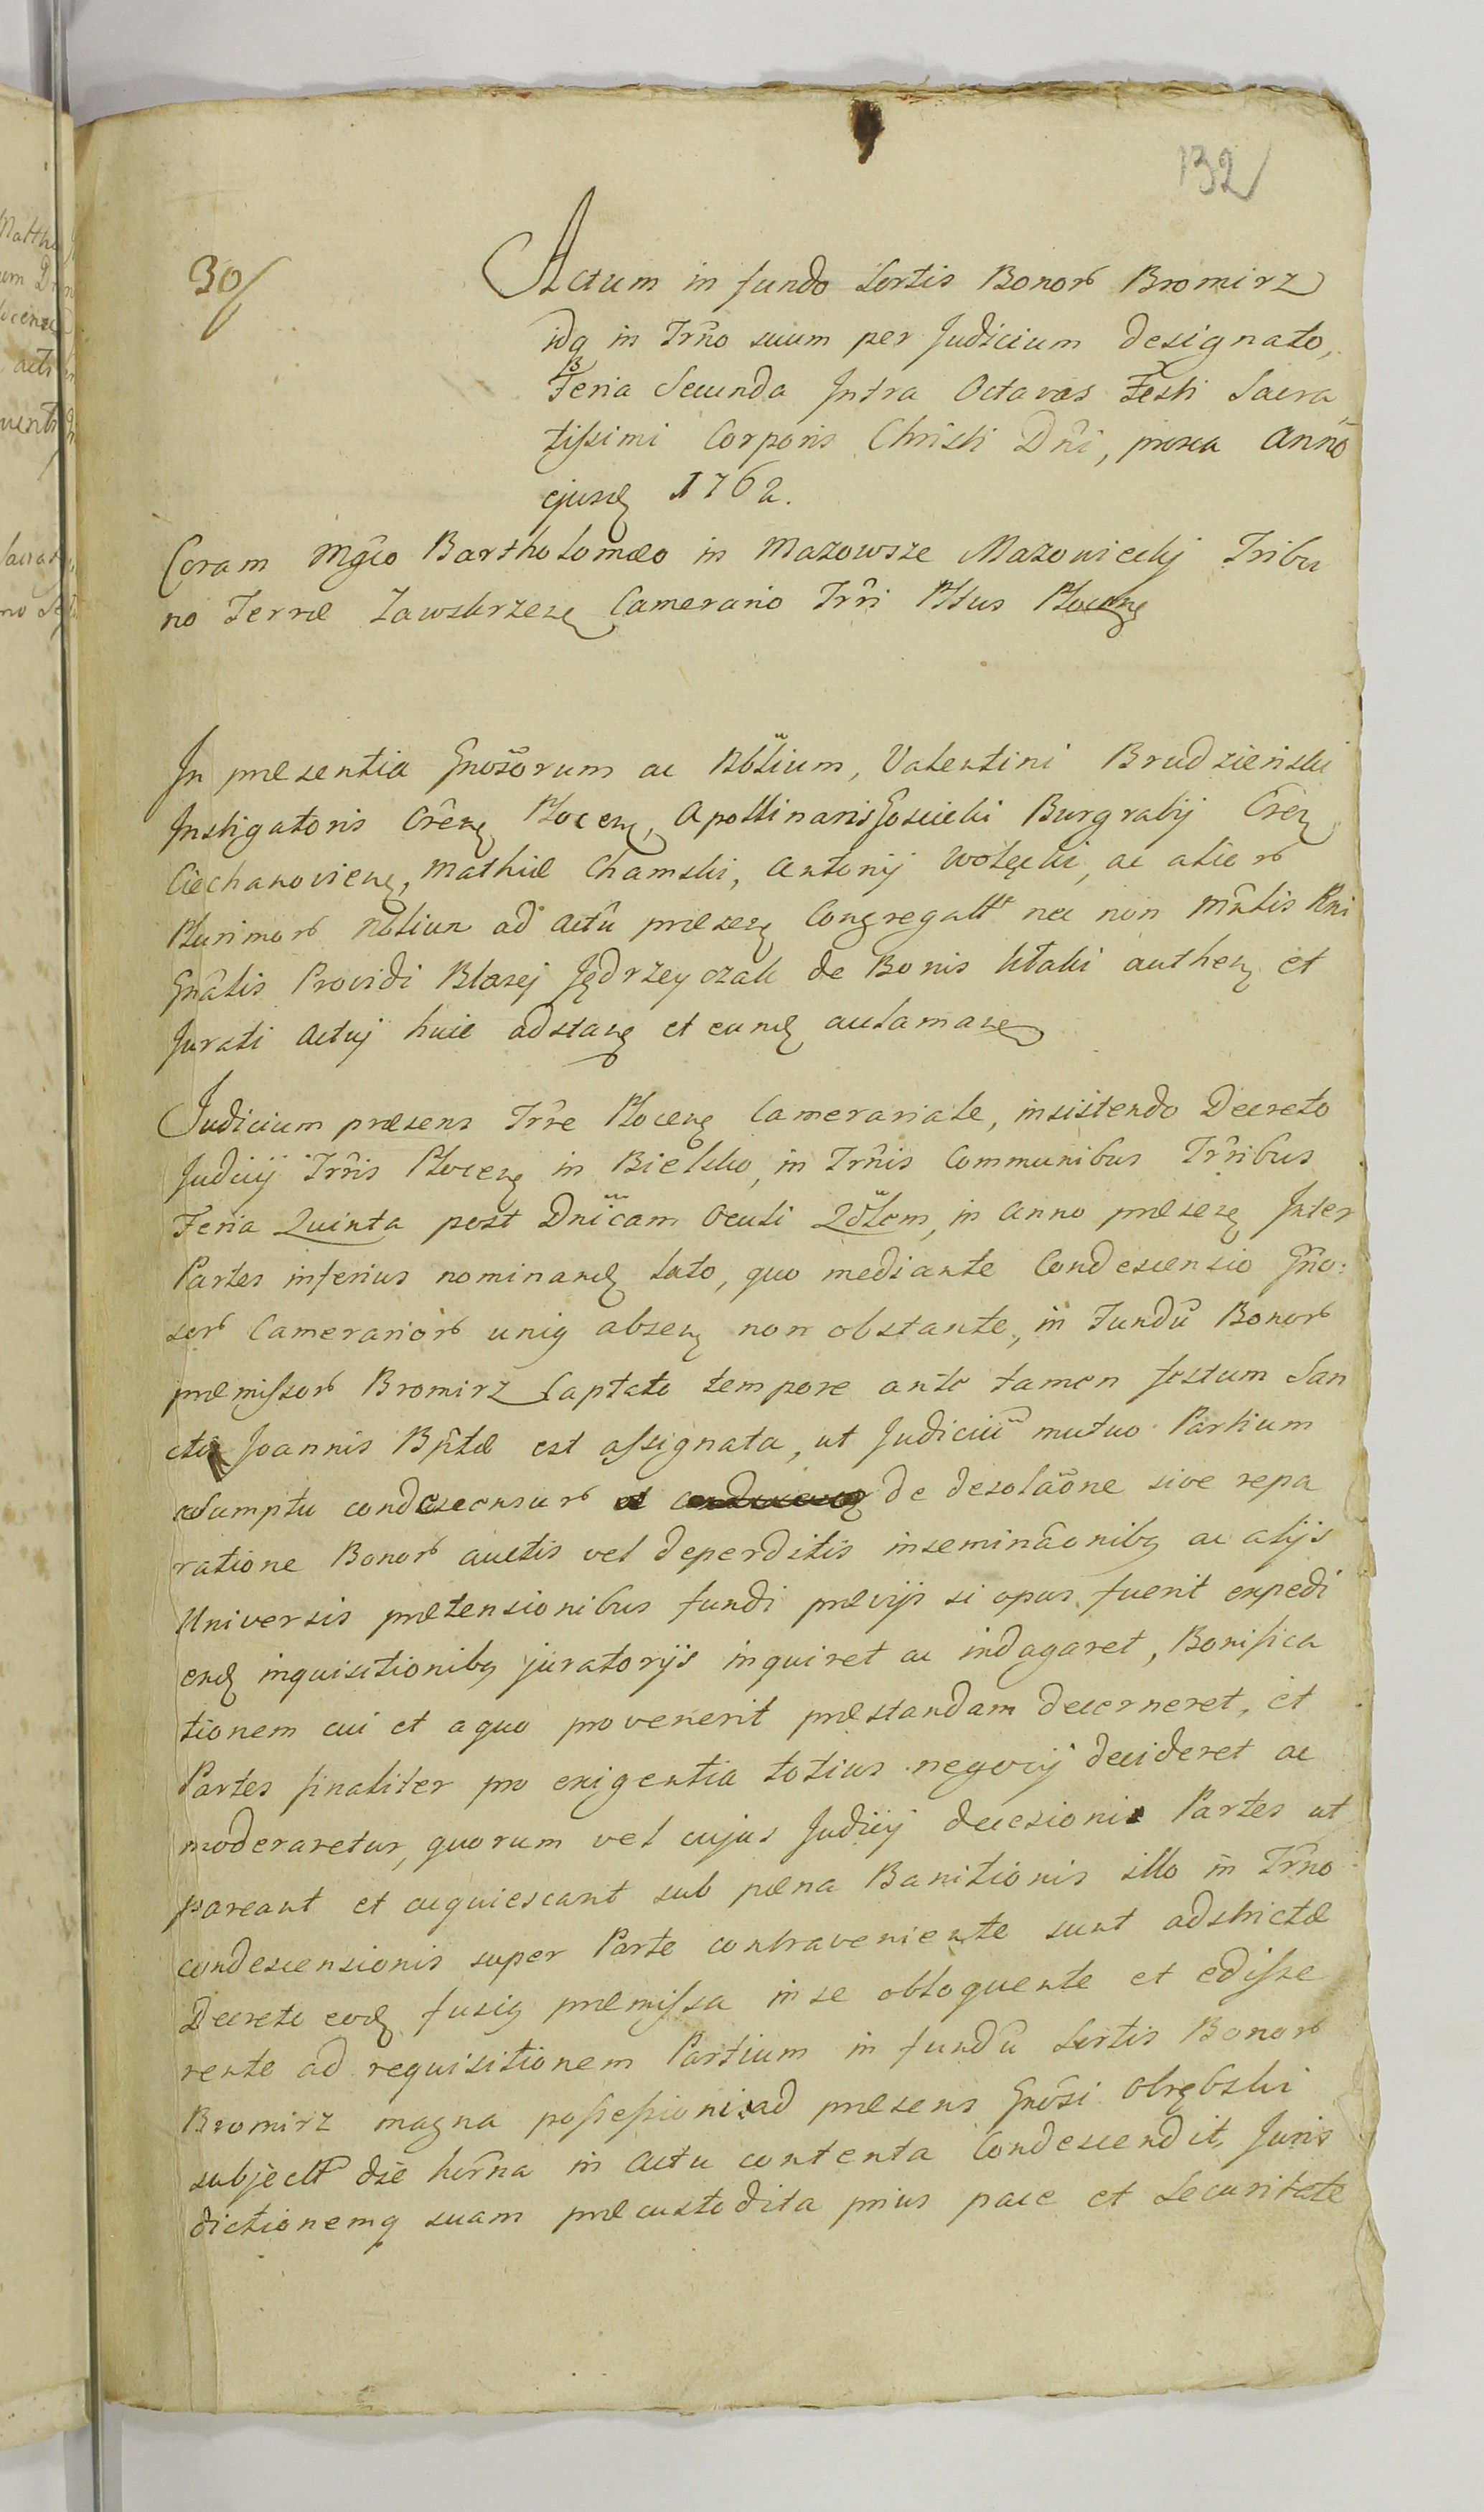 132
30/
Actum in fundo Sortis Bonorb Bromirz
idq in Trñô suum per Judicium designato,
Feria Secunda Jntra Octavas Festi Sacra
tissimi Corporis Christi Dñi, proxa Anno
ejusd 1762.
Coram Mgco Bartholomæo in Mazowsze Mazowiecky Tribu
no Terræ Zawskrzen Camerario Trri Pttus Plocen
Jn præsentia Gnosorum ac Nobilium, Valentini Brudzieński
Jnstigatoris Cren Plocen, Apollinaris Goscicki Burgrabij Cren
Ciechanovien, Mathiæ Chamski, Antonij Wolęcki, ac aliorb
Plurimorb Nobliun ad Actũ præsen Congregatt nec non Mntis Rni
Gnalis Providi Blasej Jędrzeyczak de Bonis authen et
Jurati Actuj huic adstan et eund acclaman
Judicium præsens Trre Plocen Camerariale, insistendo Decreto
Judicij Trris Plocen in Bielsko, in Trñis Communibus Trribus
Feria Quinta post Dnicam Oculi Qdlem, in Anno præsen Jnter
Partes inferius nominand lato, quo mediante Condescensio Gño:
sorb Camerariorb uniq absen non obstante, in Fundũ Bonorb
præmissorb Bromirz Captato tempore ante tamen festum San
cti Joannis Bptæ est assignata, ut Judiciũ mutuo Partium
sumptu condescensurb de desolaône sive repa
ratione Bonorb auctis vel deperditis inseminâonibq ac alijs
Universis prætensionibus fundi prævijs si opus fuerit expedi
end inquisitionibq juratorijs inquiret ac indagaret, Bonifica
tionem cui et a quo provenerit præstandam decerneret, et
Partes finaliter pro exigentia totius negocij decideret ac
moderaretur, quorum vel cujus Judicij decesioni Partes ut
pareant et acquiescant sub pæna Banitionis illo in Trño
condescensionis super Parte contraveniente sunt adstrictæ
Decreto eod fusiq præmissa in se obloquente et edisse
rente ad requisitionem Partium in fundũ Sortis Bonorb
Bromirz magna possessioni ad præsens Gnosi Obrębski
subject dse horna in Actu contenta Condescendit, Juris
dictionemq suam præcustodita prius pace et Securitate